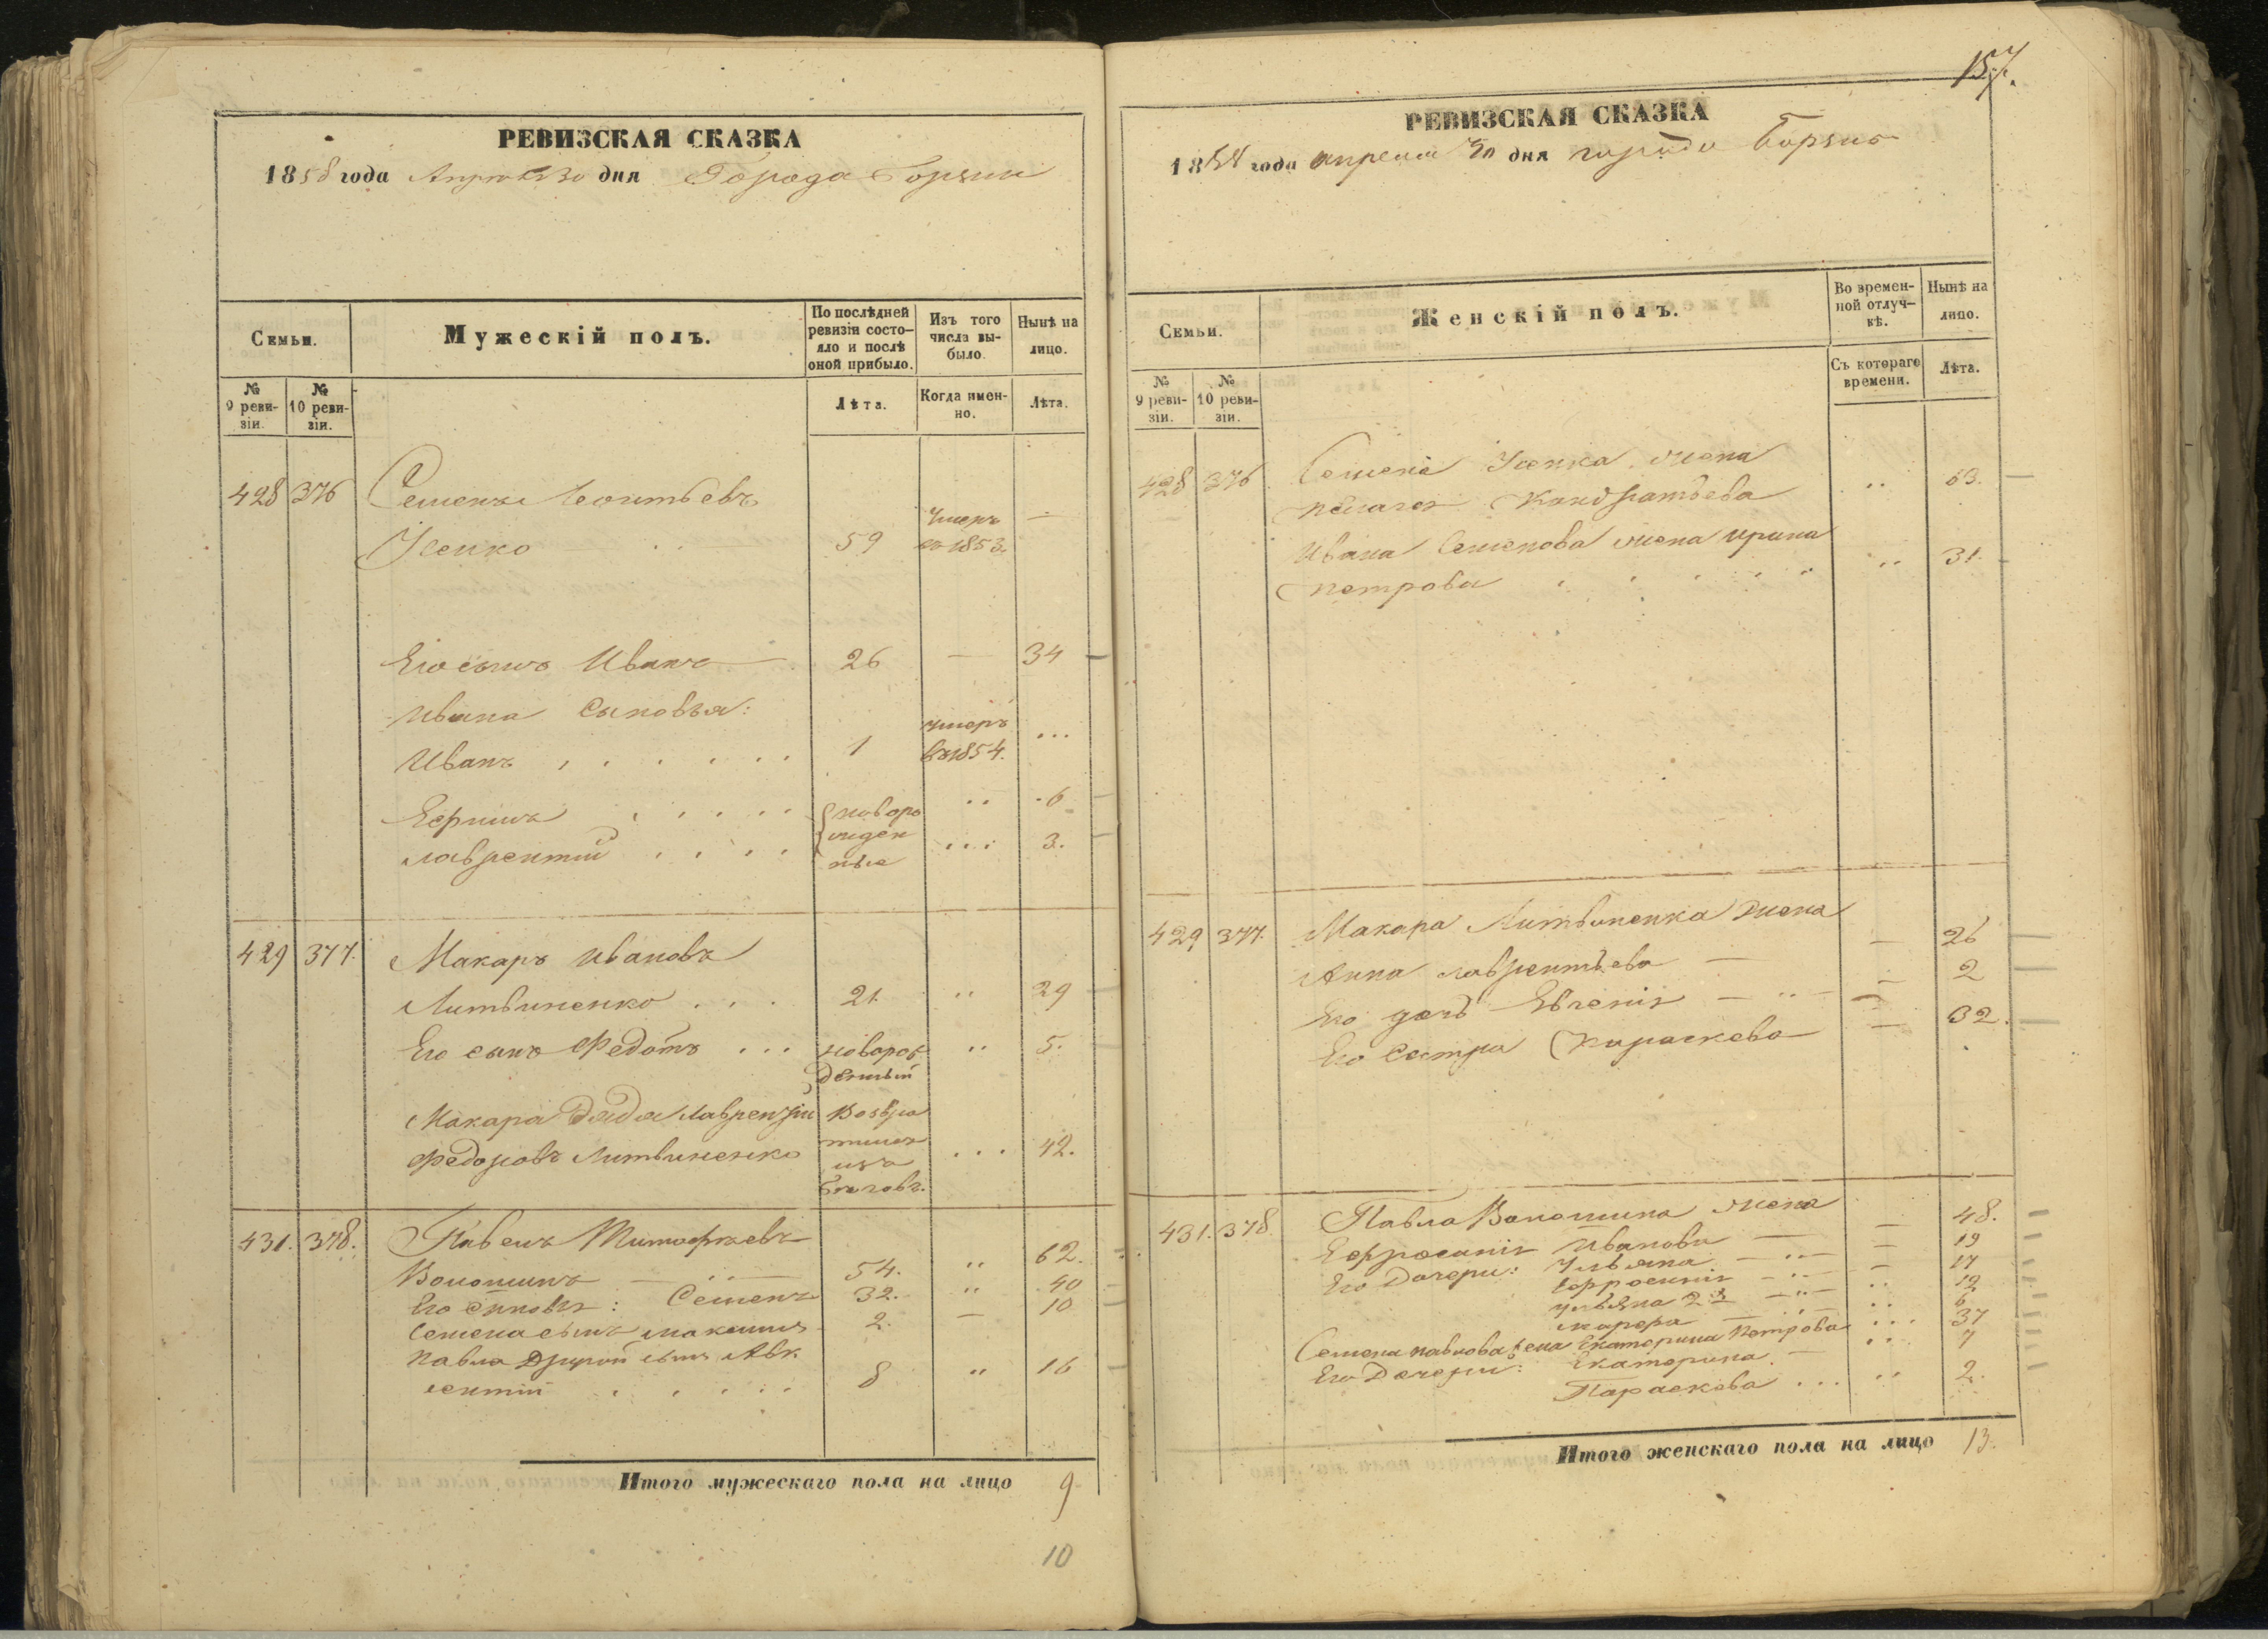 РЕВИЗСКАЯ СКАЗКА
1858 года Апреля 30 дня Города Борзны
Семьи.
Мужескій полъ.
По послѣдней ревизіи состо-
яло и послѣ
оной прибыло.
Изъ того
числа вы-
было.
Нынѣ на
лицо.
№
9 реви-
зіи.
№
10 реви-
зіи.
Лѣта.
Когда имен-
но.
Лѣта.
428 376 Семенъ Леонтьевъ
Усенко 59 Умеръ въ 1853. —
Его сынъ Иванъ 26 — 34
Ивана сыновья:
Иванъ 1 умеръ въ 1854. ...
6
Лаврентий 3.
новоро
жден
ные
429 377. Макаръ Ивановъ
Литвиненко . . . 21. " 29
Его сынъ Федотъ ... новорож
денный " 5.
Макара дядя Лаврентій
Литвиненко ... 42.
Возвра
тился
изъ
бѣговъ.
431. 378. Павелъ Тимофѣевъ
Волошинъ 54. " 62.
Его сыновья: Семенъ 32. " 40
Семена сынъ Максимъ 2. — 10
Павла другой сынъ Авк
сентий 8 " 16
Итого мужескаго пола на лицо 9
10
157.
РЕВИЗСКАЯ СКАЗКА
1858 года апреля 30 дня города Борзны
Семьи.
Женскій полъ.
Во времен-
ной отлуч-
кѣ.
Нынѣ на
лицо.
№
9 реви-
зіи.
№
10 реви-
зіи.
Съ котораго
времени.
Лѣта.
428 376 Семена Усенка жена
Пелагея Кондратьева .. 63.
Ивана Семенова жена Ирина
Петрова .. 31.
429 377. Макара Литвиненка жена
Анна Лаврентьева — 26
Его дочь Евгенія — 2
Его сестра Параскева — 32.
431. 378 Павла Волошина жена
Ефросинія Иванова — 48.
Его дочери: Ульяна — 19
Ефросинія — 17
Ульяна 2я .. 12
6
Семена Павлова жена Екатерина Петрова ... 37
Его дочери: Екатерина — 7
Параскева ... 2.
Итого женскаго пола на лицо 13.